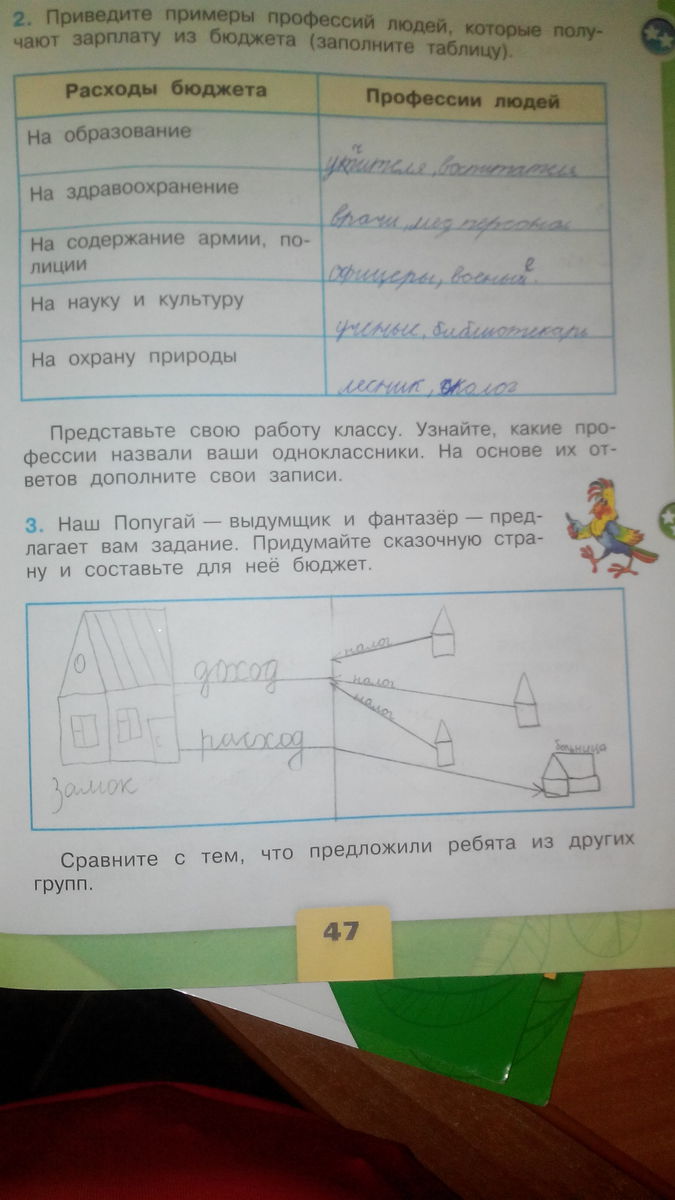 2. Приведите примеры профессий людей, которые полу-
чают зарплату из бюджета (заполните таблицу).
Расходы бюджета
Профессии людей
На образование
учителя, воспитатели
На здравоохранение
врачи, мед персонал
На содержание армии, по-
лиции
офицеры, военные.
На науку и культуру
ученые, библиотекарь
На охрану природы
лесник, эколог
Представьте свою работу классу. Узнайте, какие про-
фессии назвали ваши одноклассники. На основе их от-
ветов дополните свои записи.
3. Наш Попугай — выдумщик и фантазёр — пред-
лагает вам задание. Придумайте сказочную стра-
ну и составьте для неё бюджет.
налог
доход
налог
налог
расход
больница
Замок
Сравните с тем, что предложили ребята из других
групп.
47